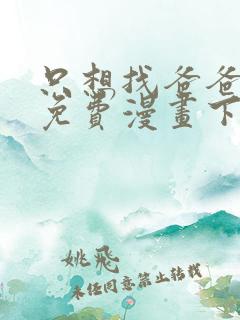 只想找爸爸
免費漫畫下
姚飛
未经同意禁止转载